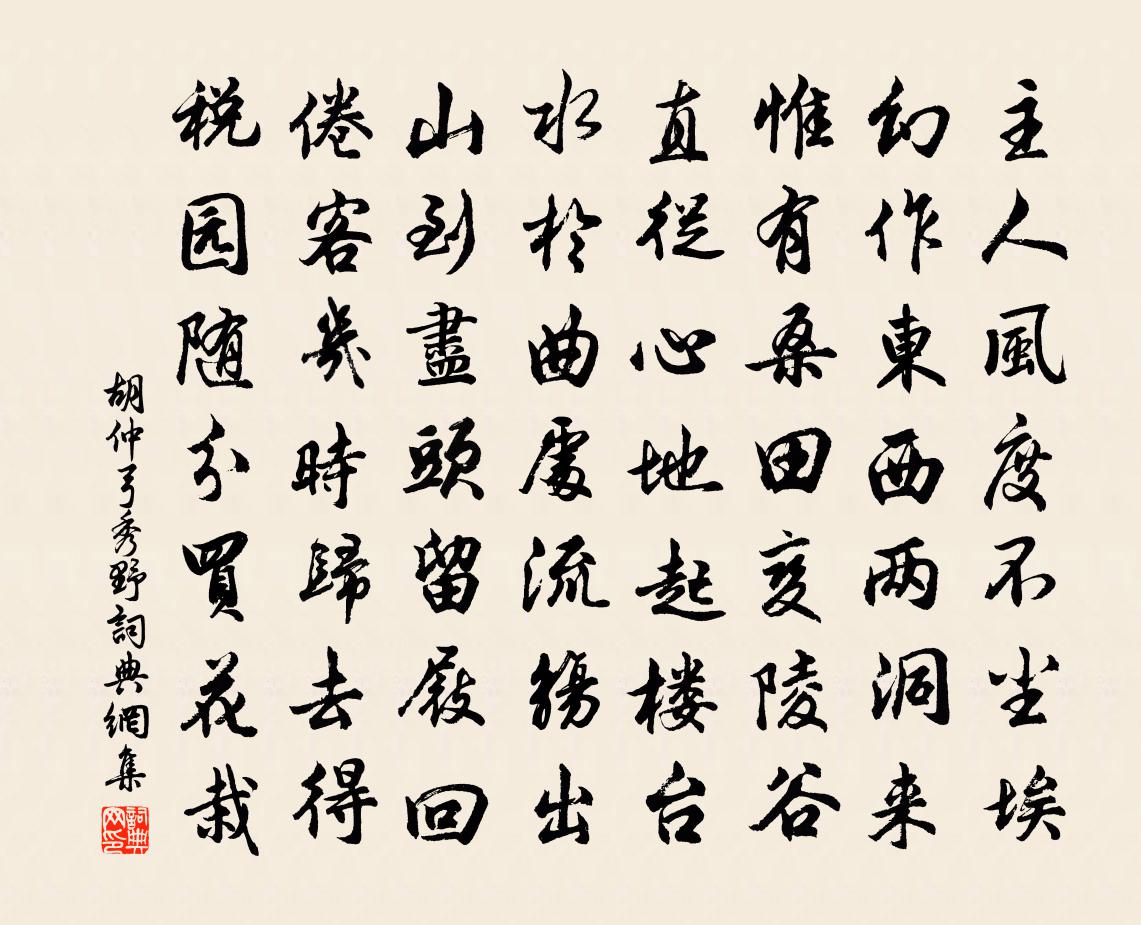 主人風度不尘埃
幻作東西两洞来
惟有桑田变陵谷
直從心地起楼台
水於曲處流觴出
山到盡頭留屐回
倦客幾時歸去得
税园随分買花栽
胡仲弓秀野詞典網集
詞典網印